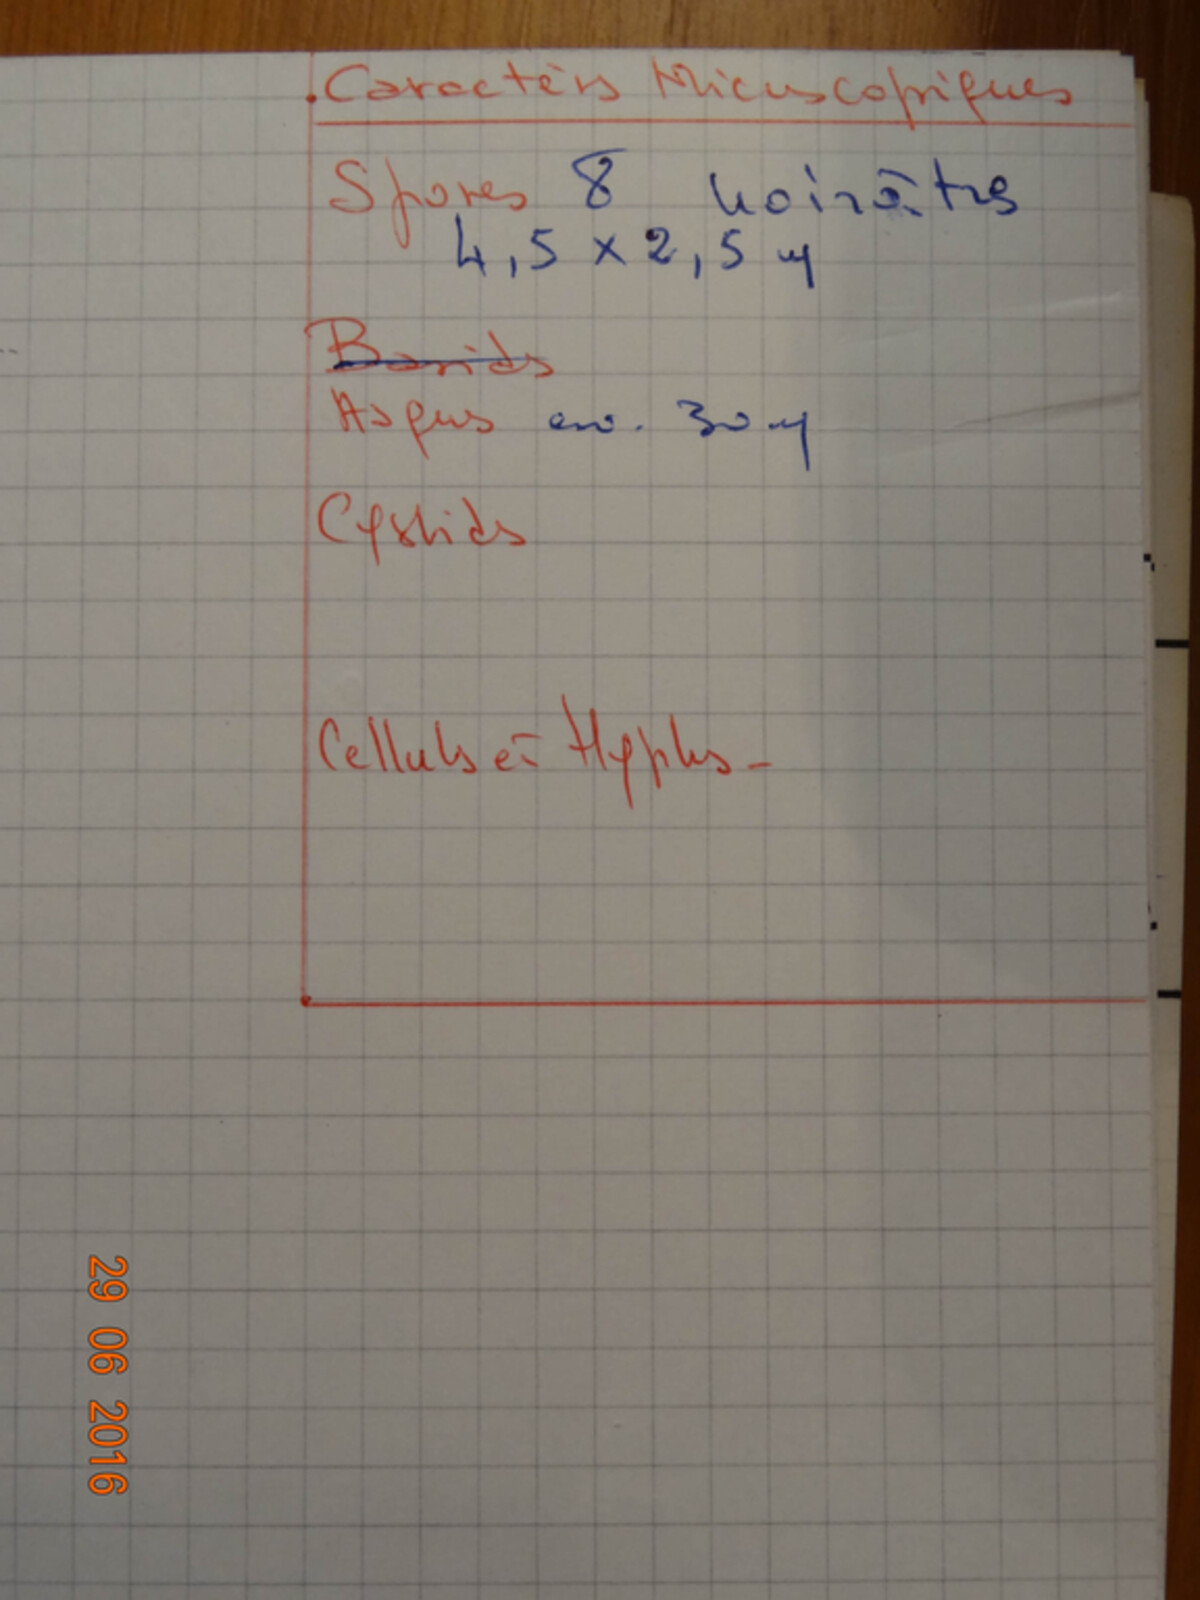 Caractèrs Micuscopiques
Spores 8 noirâtrs
4,5 × 2,5 µ
Basids
Asques env. 30 µ
Cystids
Celluls et Hyphs -
29 06 2016